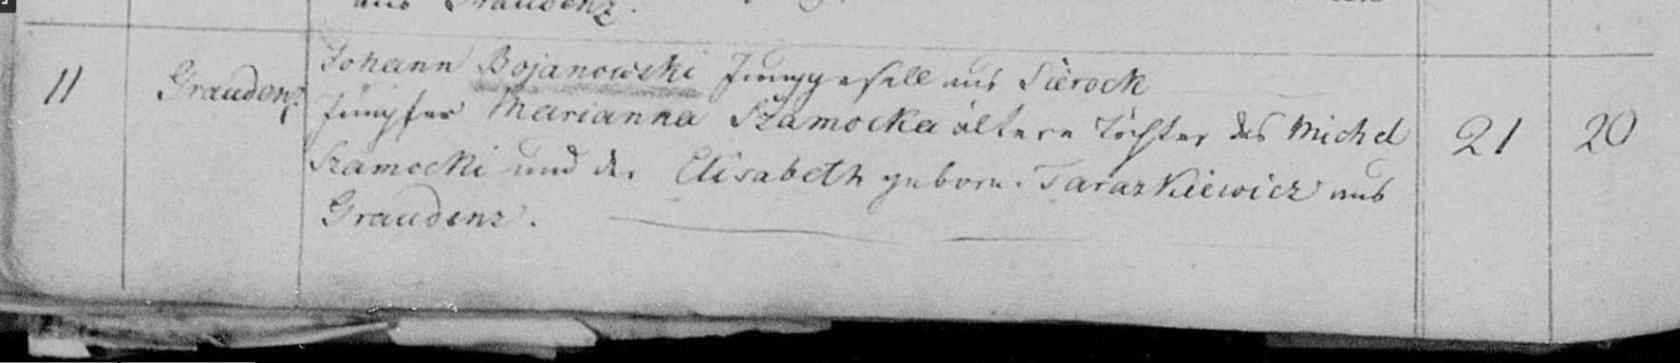 aus Graudenz.
11 Graudenz Johann Bojanowski Junggesell aus Sierock
Jungfer Marianna Szamocka ältere Tochter des Michel 21 20
Szamocki und der Elisabeth geborn. Taraszkiewicz aus
Graudenz.